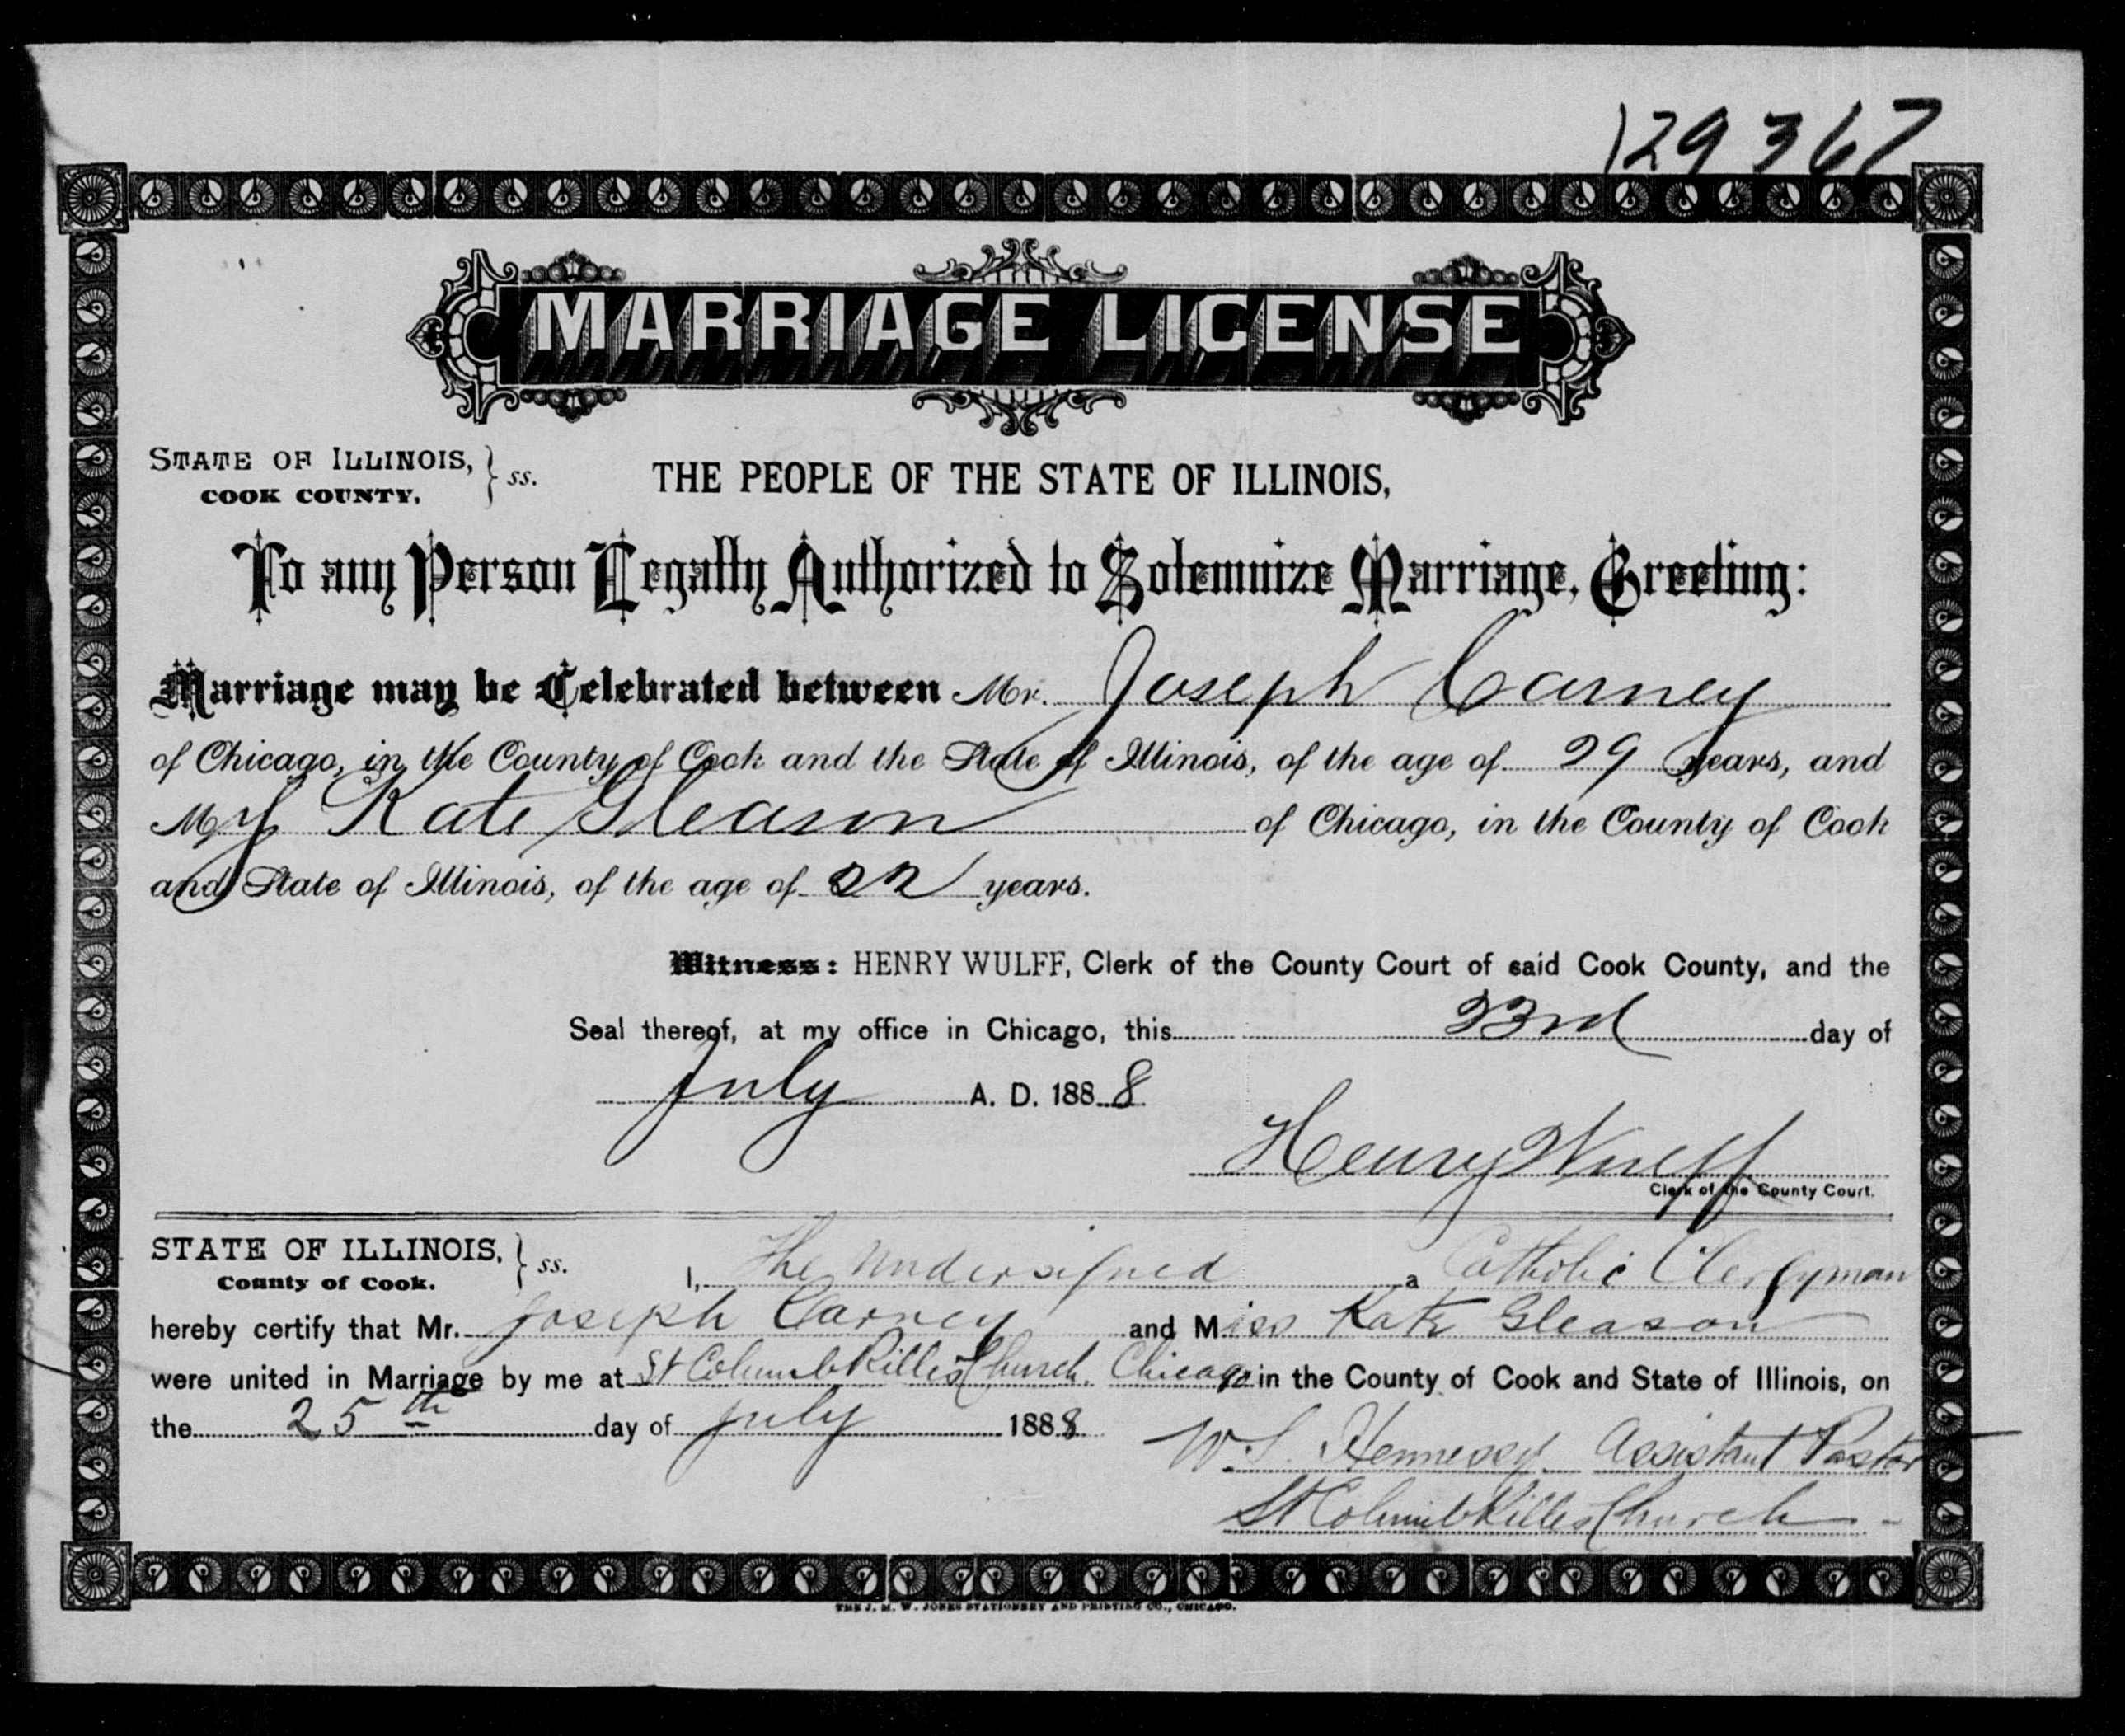 129367
MARRIAGE LICENSE
STATE OF ILLINOIS, } ss. THE PEOPLE OF THE STATE OF ILLINOIS,
COOK COUNTY.
To any Person Legally Authorized to Solemnize Marriage, Greeting:
Marriage may be Celebrated between Mr. Joseph Carney
of Chicago, in the County of Cook and the State of Illinois, of the age of 29 years, and
M Kate Gleason of Chicago, in the County of Cook
and State of Illinois, of the age of 22 years.
Witness: HENRY WULFF, Clerk of the County Court of said Cook County, and the
Seal thereof, at my office in Chicago, this 23rd day of
July A. D. 1888
Henry Wulff
Clerk of the County Court.
STATE OF ILLINOIS, } ss. I, The Undersigned a Catholic Clergyman
County of Cook.
hereby certify that Mr. Joseph Carney and Miss Kate Gleason
were united in Marriage by me at St ColumbKilles Church. Chicago in the County of Cook and State of Illinois, on
the 25th day of July 1888 W. S. Hennessy Assistant Pastor
St ColumbKilles Church
THE J. M. W. JONES STATIONERY AND PRINTING CO., CHICAGO.